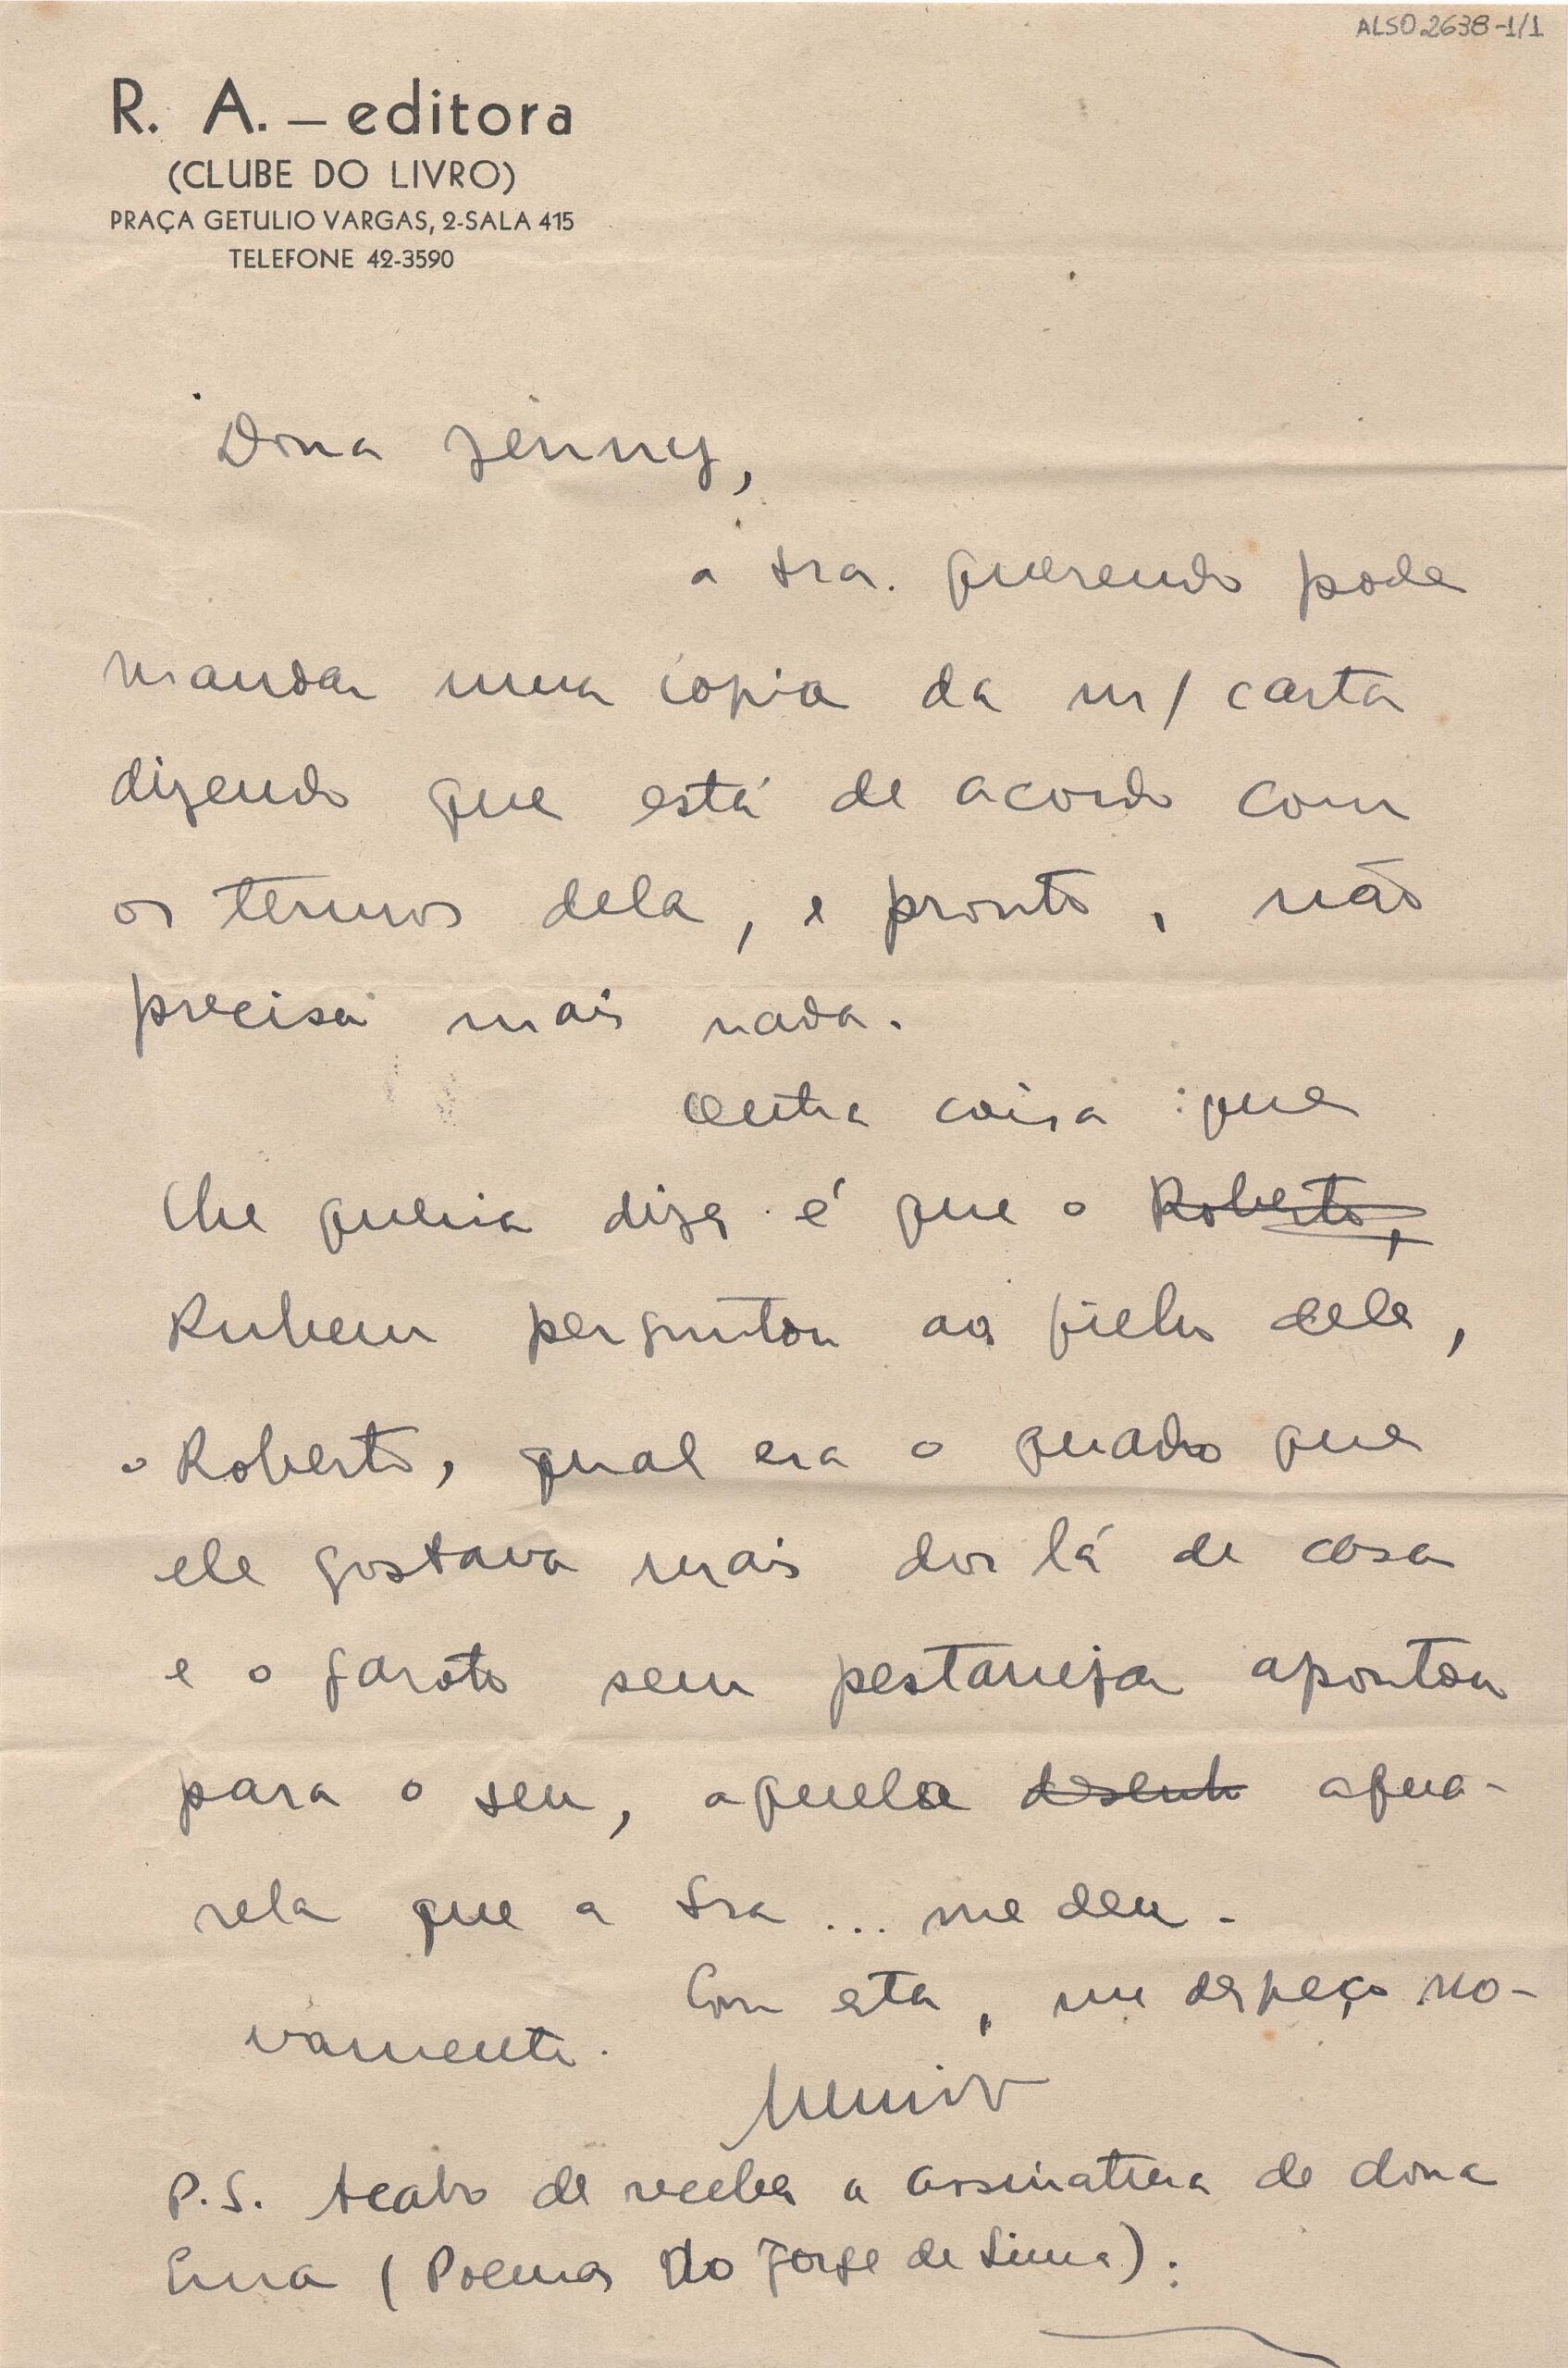 ALSO 2638-1/1
R. A. — editora
(CLUBE DO LIVRO)
PRAÇA GETULIO VARGAS, 2-SALA 415
TELEFONE 42-3590
Dona Jenny,
a sra. querendo pode
mandar uma copia da m/ carta
dizendo que está de acordo com
os termos dela, e pronto, não
precisa mais nada.
Outra coisa que
lhe queria dizer é que o Roberto,
Rubem perguntou ao filho dele,
o Roberto, qual era o quadro que
ele gostava mais dos lá de casa
e o garoto sem pestanejar apontou
para o seu, aquela desenho aqua-
rela que a sra... me deu.
Com esta, me despeço no-
vamente.
P.S. Acabo de receber a assinatura de dona
Ema (Poemas do Jorge de Lima).